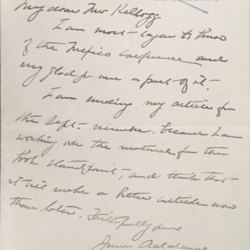 My dear Mr Kellogg
I am most eager to
of the Conference and
my glad for a part of it.
I am sending my article for
the Sept. number, because I am
working on the material for the
book and think that
it will make a better article now
than later. Faithfully yours
Jane Addams